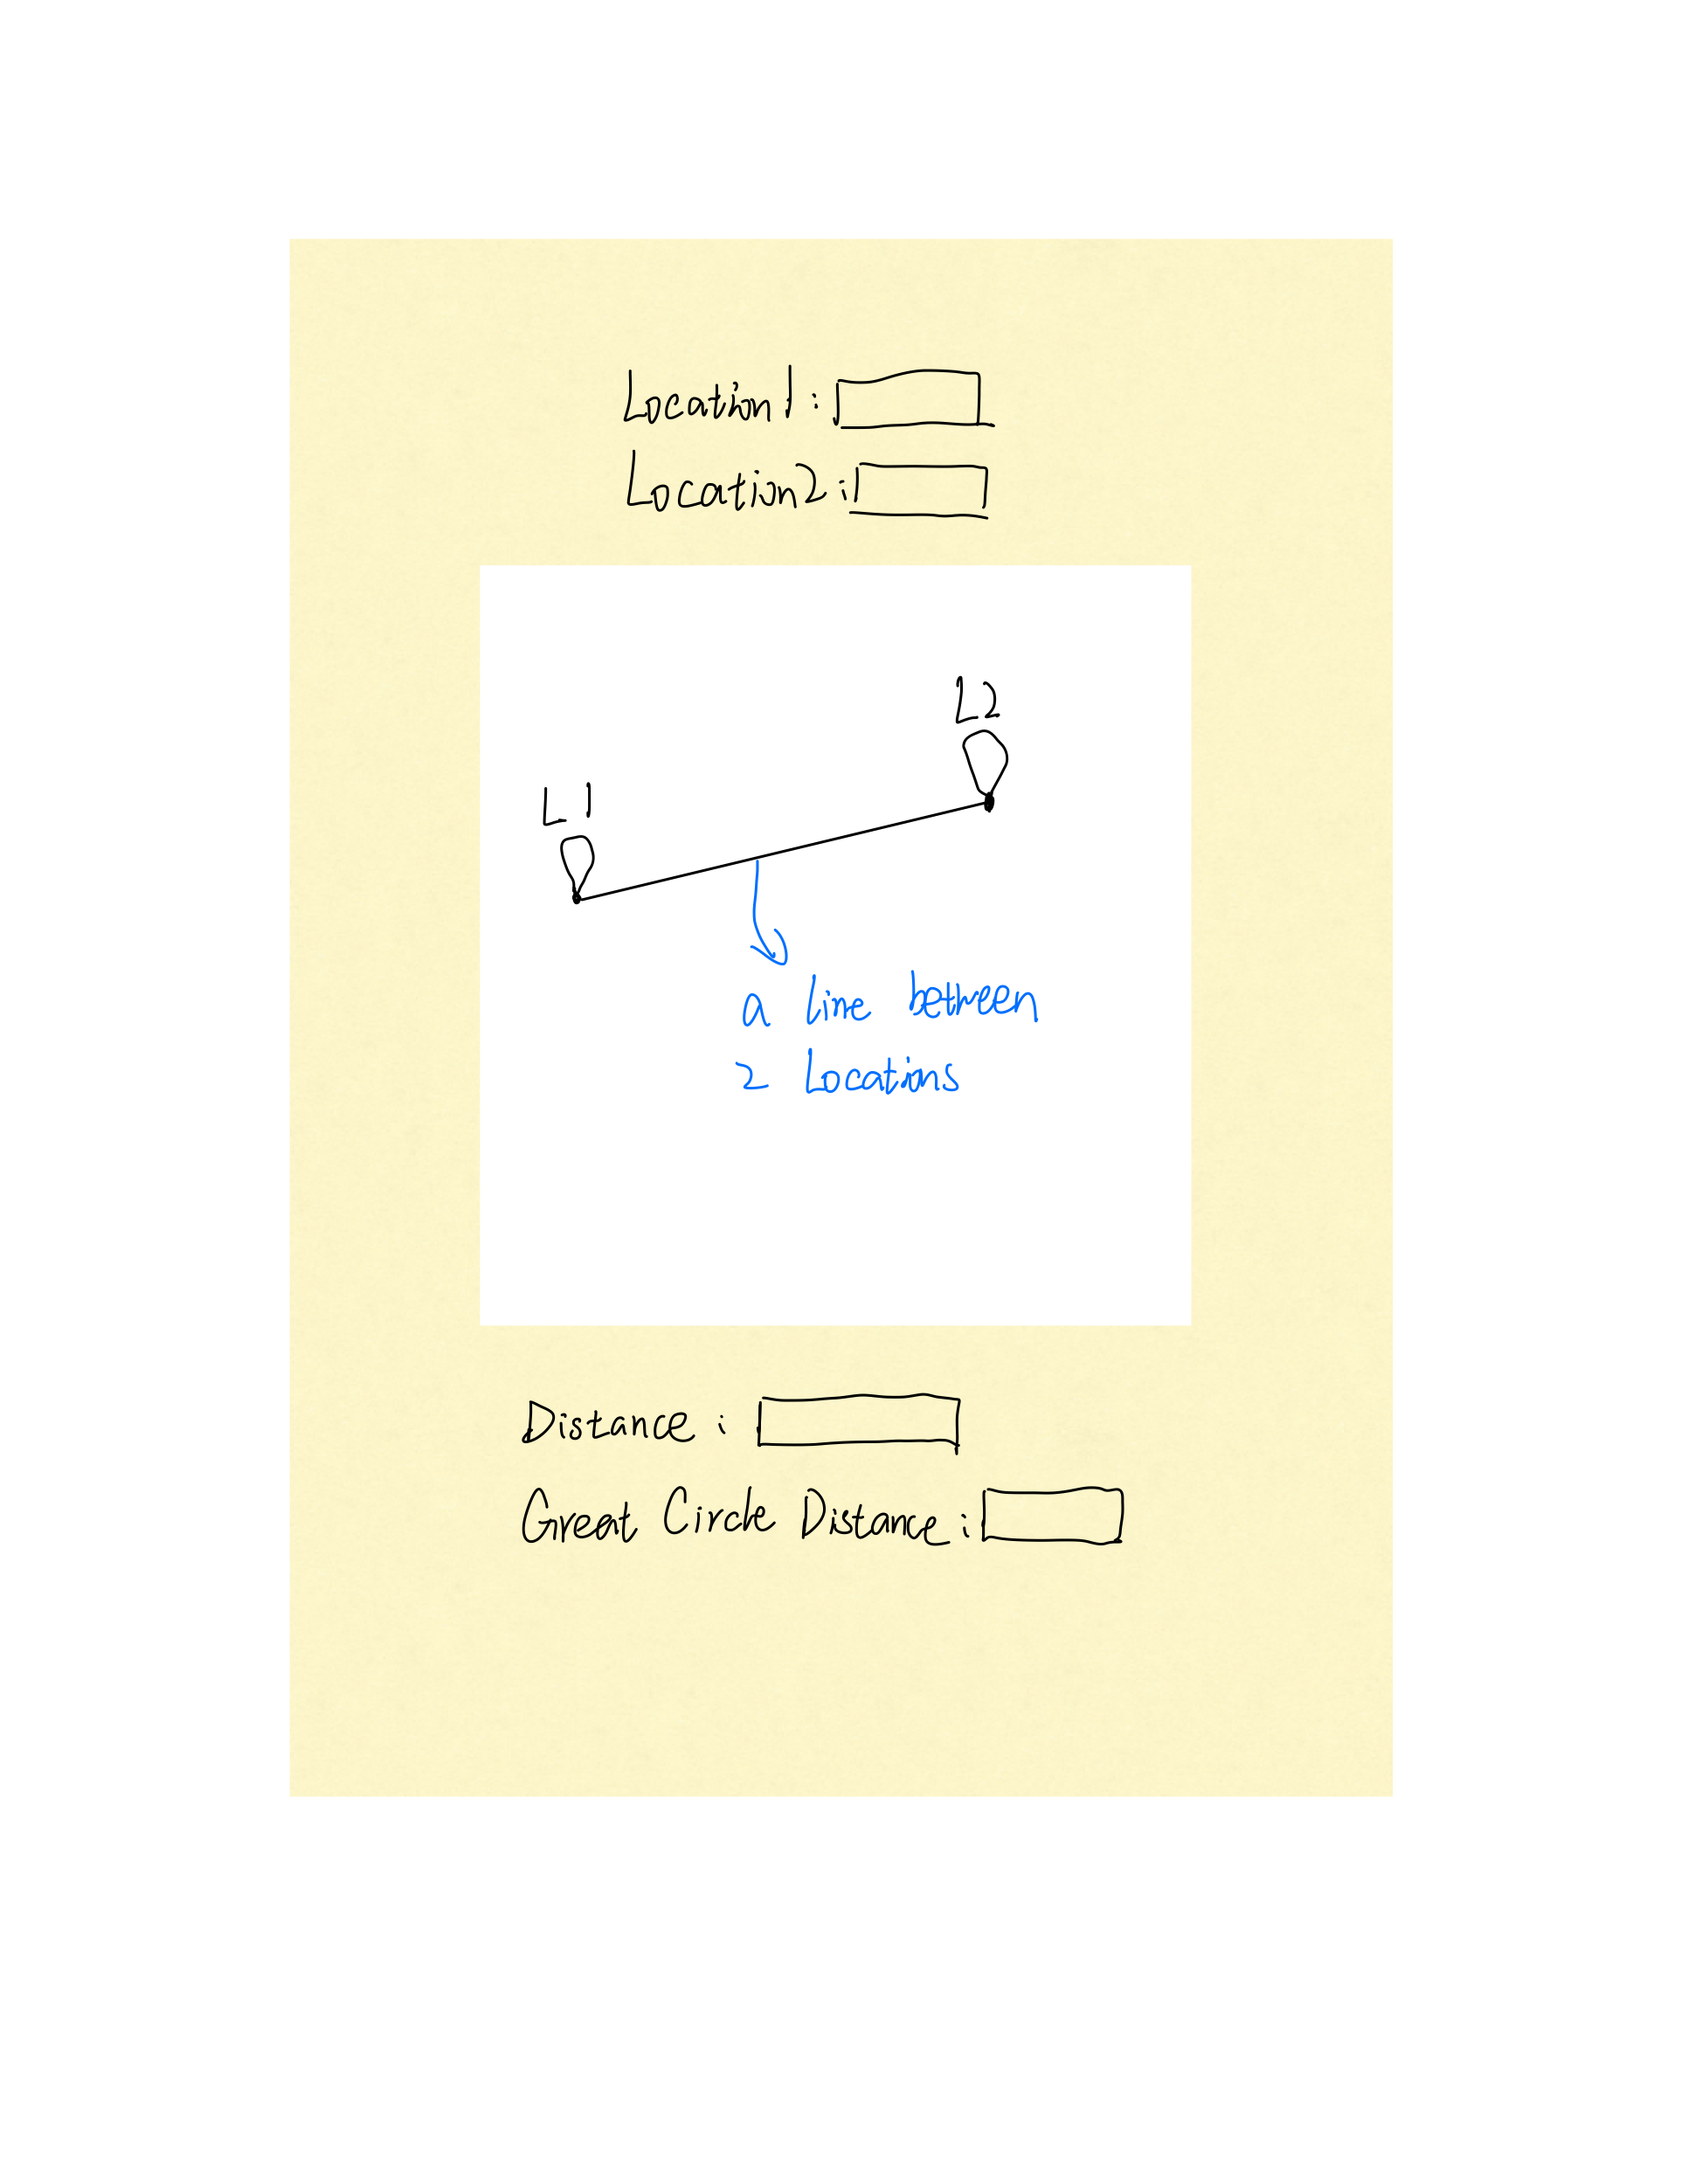 Location1:
Location2:
L2
L1
a line between
2 Locations
Distance:
Great Circle Distance: